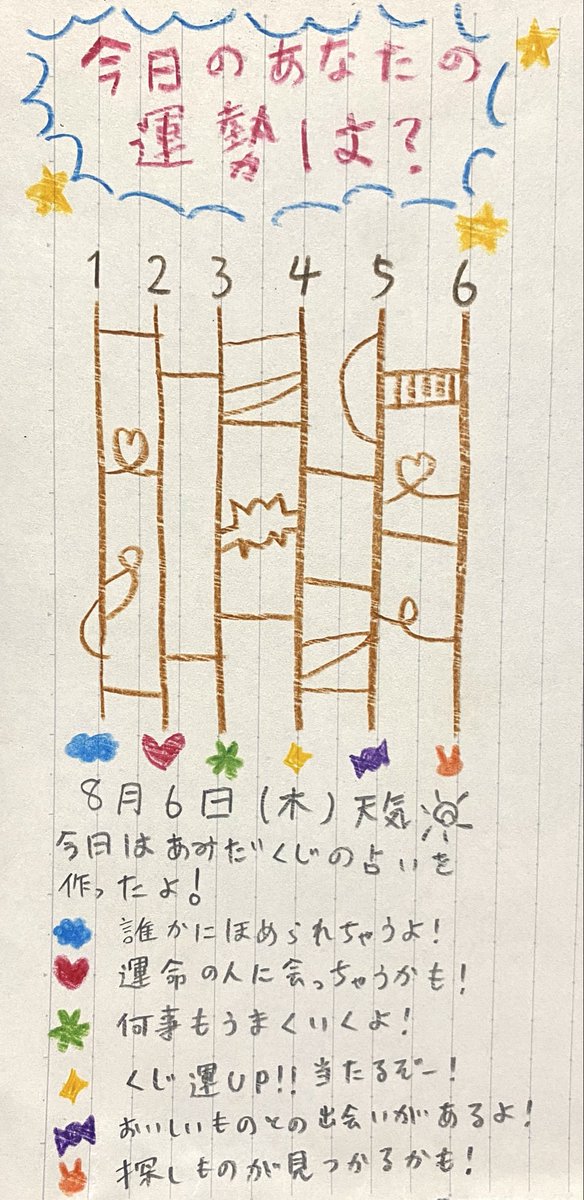 今日のあなたの
運勢は？
1 2 3 4 5 6
8月6日(木)天気
今日はあみだくじの占いを
作ったよ!
誰かにほめられちゃうよ!
運命の人に会っちゃうかも!
何事もうまくいくよ!
くじ運UP!!当たるぞー!
おいしいものとの出会いがあるよ!
探しものが見つかるかも!